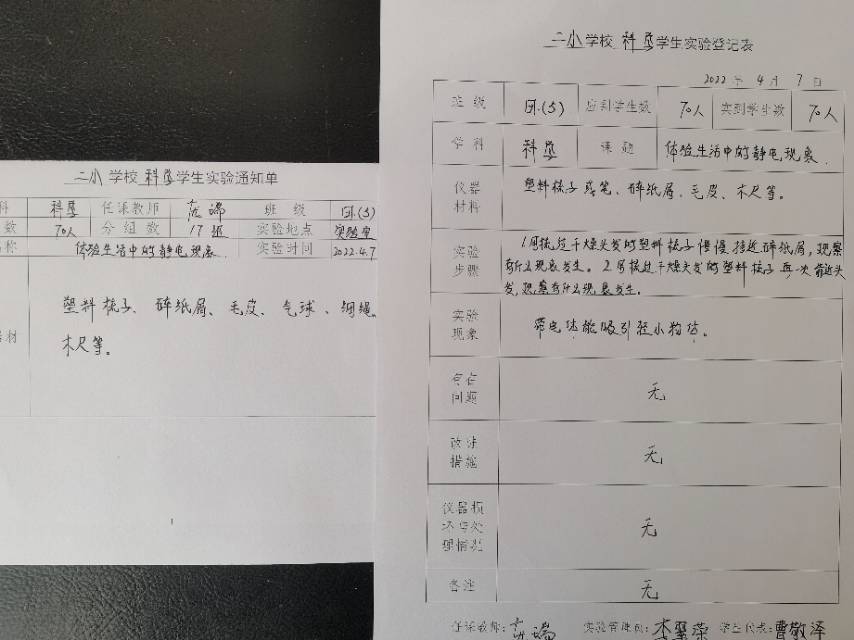 二小学校科学学生实验通知单
科 科学 任课教师 范端 班级 四.(5)
数 70人 分组数 17组 实验地点 实验室
名称 体验生活中的静电现象 实验时间 2022.4.7
器材
塑料梳子、碎纸屑、毛皮、气球、细绳、
木尺等。
1
二小学校科学学生实验登记表
2022年4月7日
班级 四.(5) 应到学生数 70人 实到学生数 70人
学科 科学 课题 体验生活中的静电现象.
仪器
材料
塑料梳子或笔、碎纸屑、毛皮、木尺等。
实验
步骤
1.用梳过干燥头发的塑料梳子慢慢接近碎纸屑,观察
有什么现象发生。2.用梳过干燥头发的塑料梳子再一次靠近头
发,观察有什么现象发生.
实验
现象
带电体能吸引轻小物体。
存在
问题
无
改进
措施
无
仪器损
坏与处
理情况
无
备注 无
任课教师:范端 实验管理员: 学生代表:曹敬泽